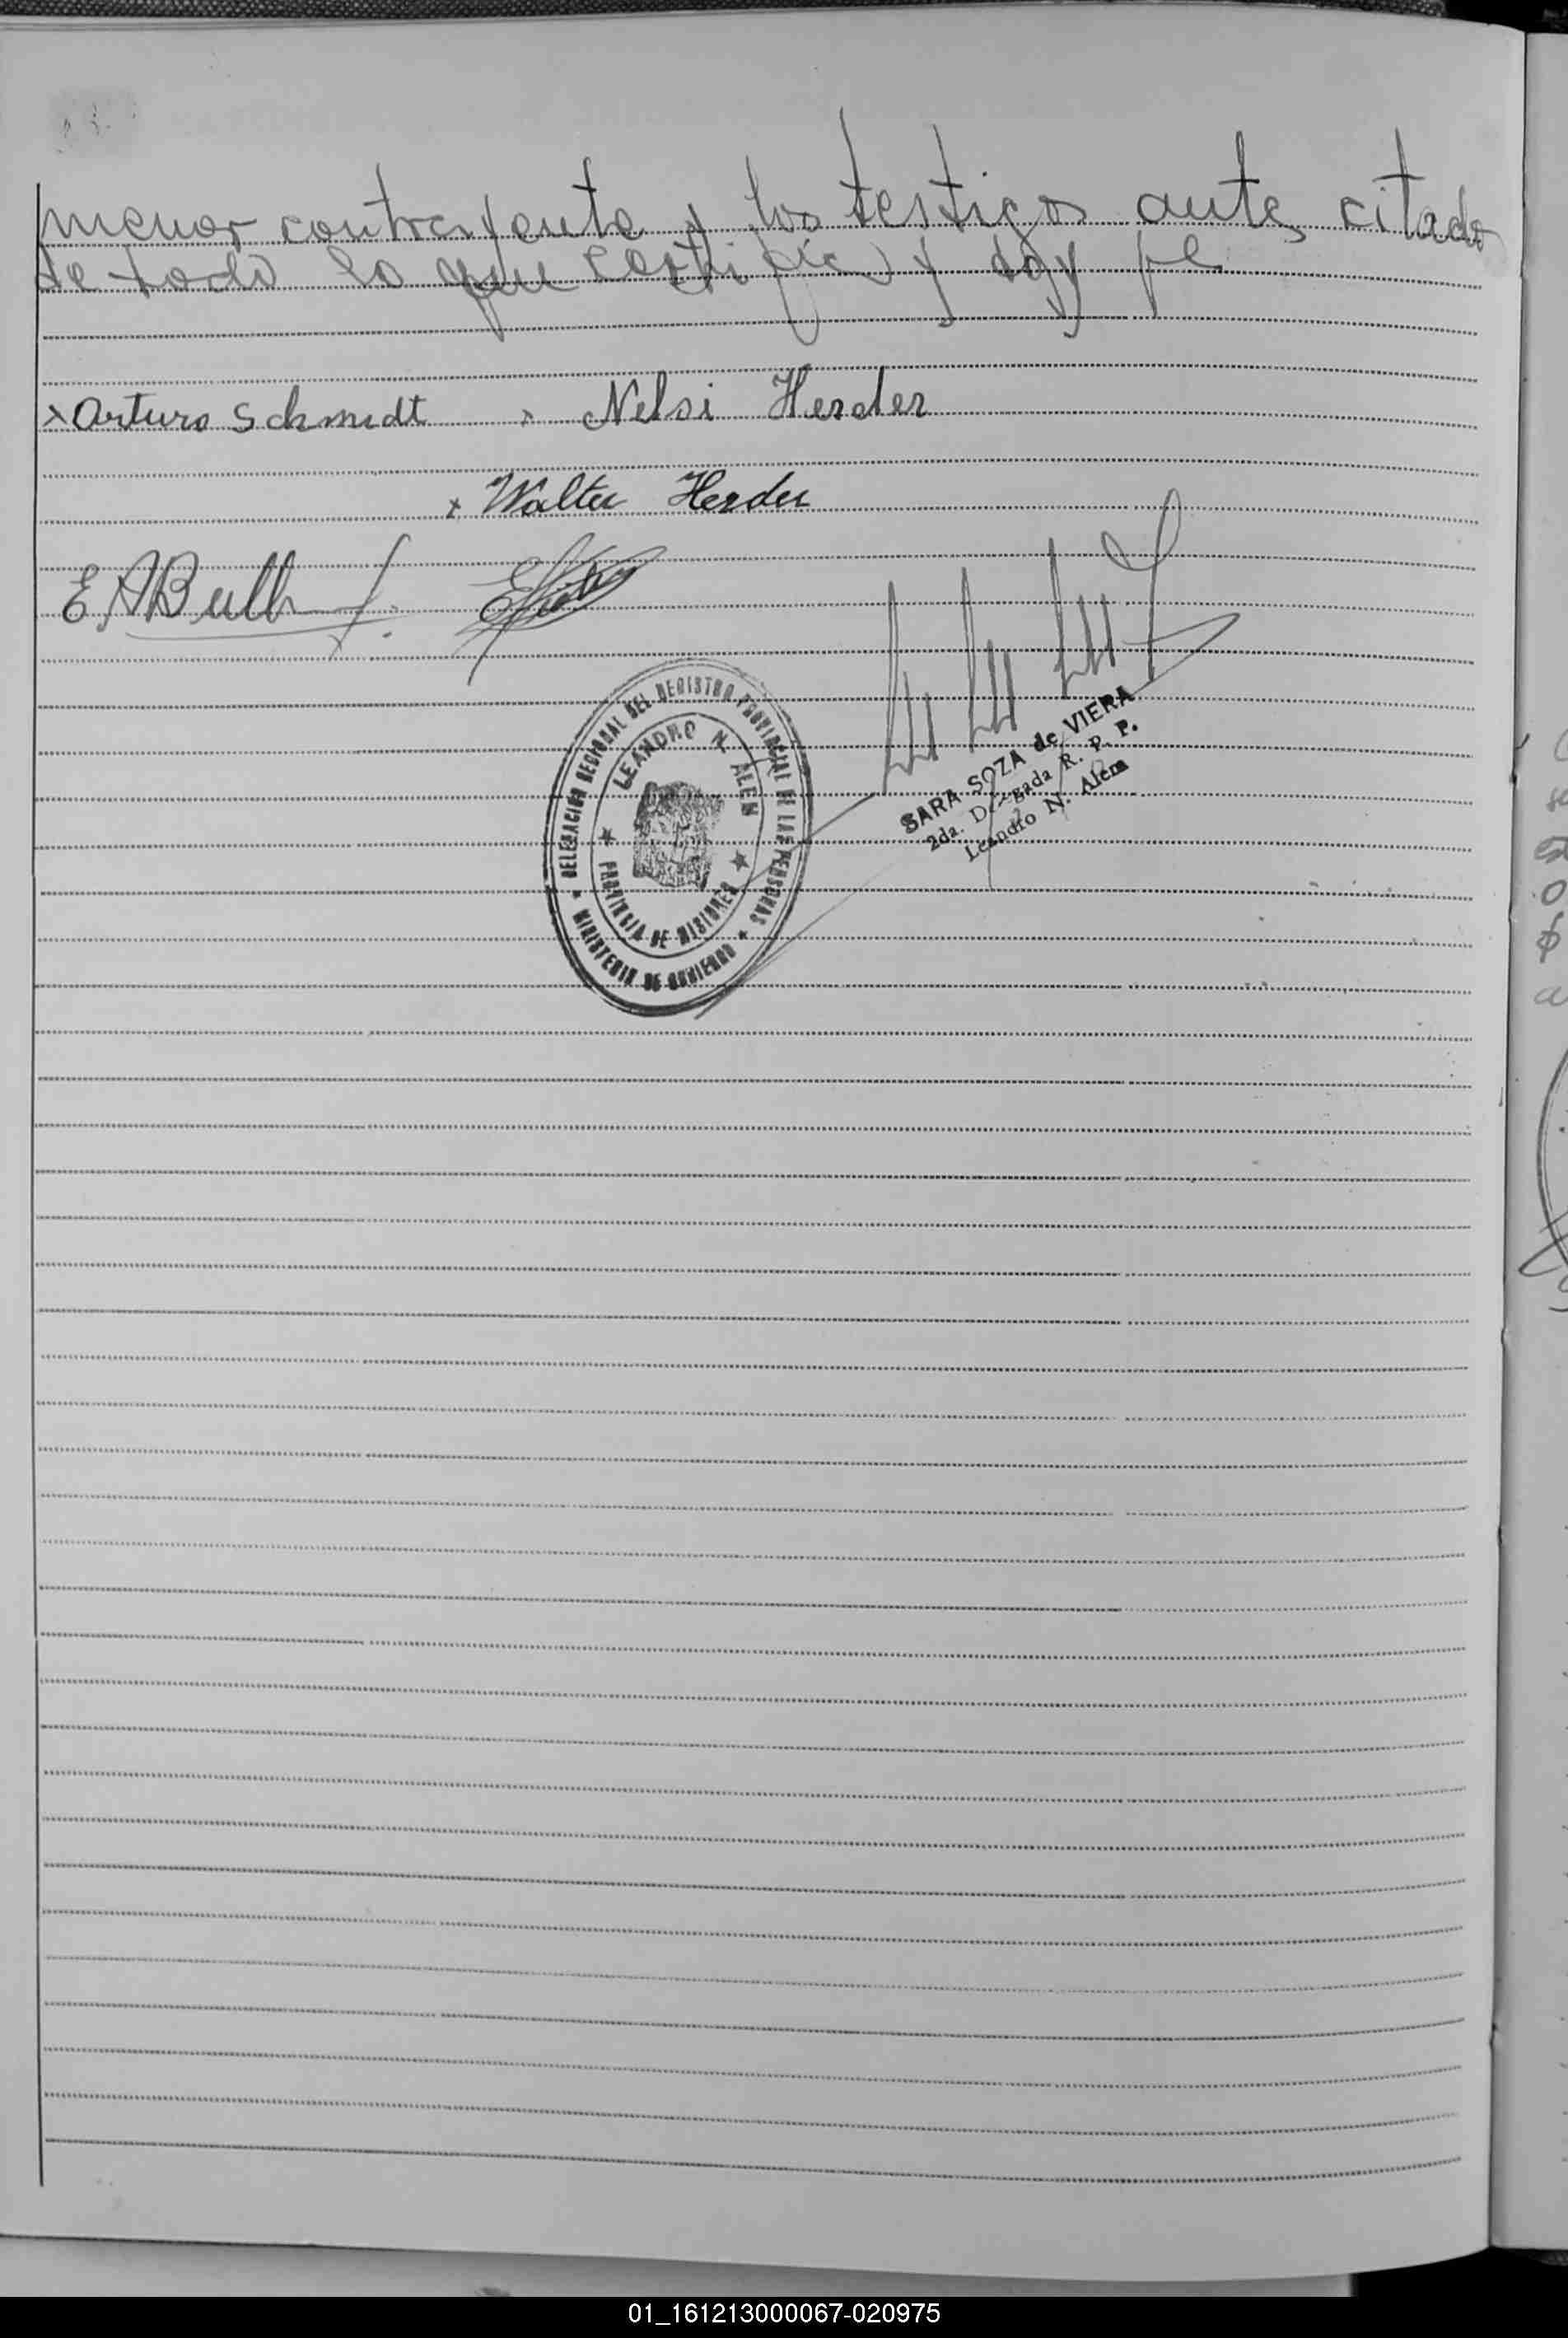 menor contrayente y los testigos antes citado
de todo lo que certifico y doy fe
x Arturo Schmidt x Nelsi Herder
x Walter Herder
E A Bulh
DELEGACIÓN REGIONAL DEL REGISTRO PROVINCIAL DE LAS PERSONAS
LEANDRO N. ALEM
PROVINCIA DE MISIONES
MINISTERIO DE GOBIERNO
SARA SOZA de VIERA
2da. Delegada R. P. P.
Leandro N. Alem
01_161213000067-020975